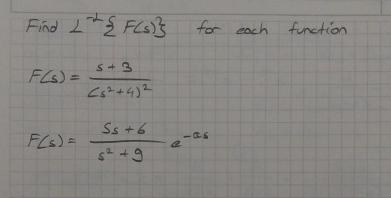 Find L⁻¹{F(s)} for each function
F(s) = s+3 / (s²+4)²
F(s) = 5s+6 / s²+9 e^-as